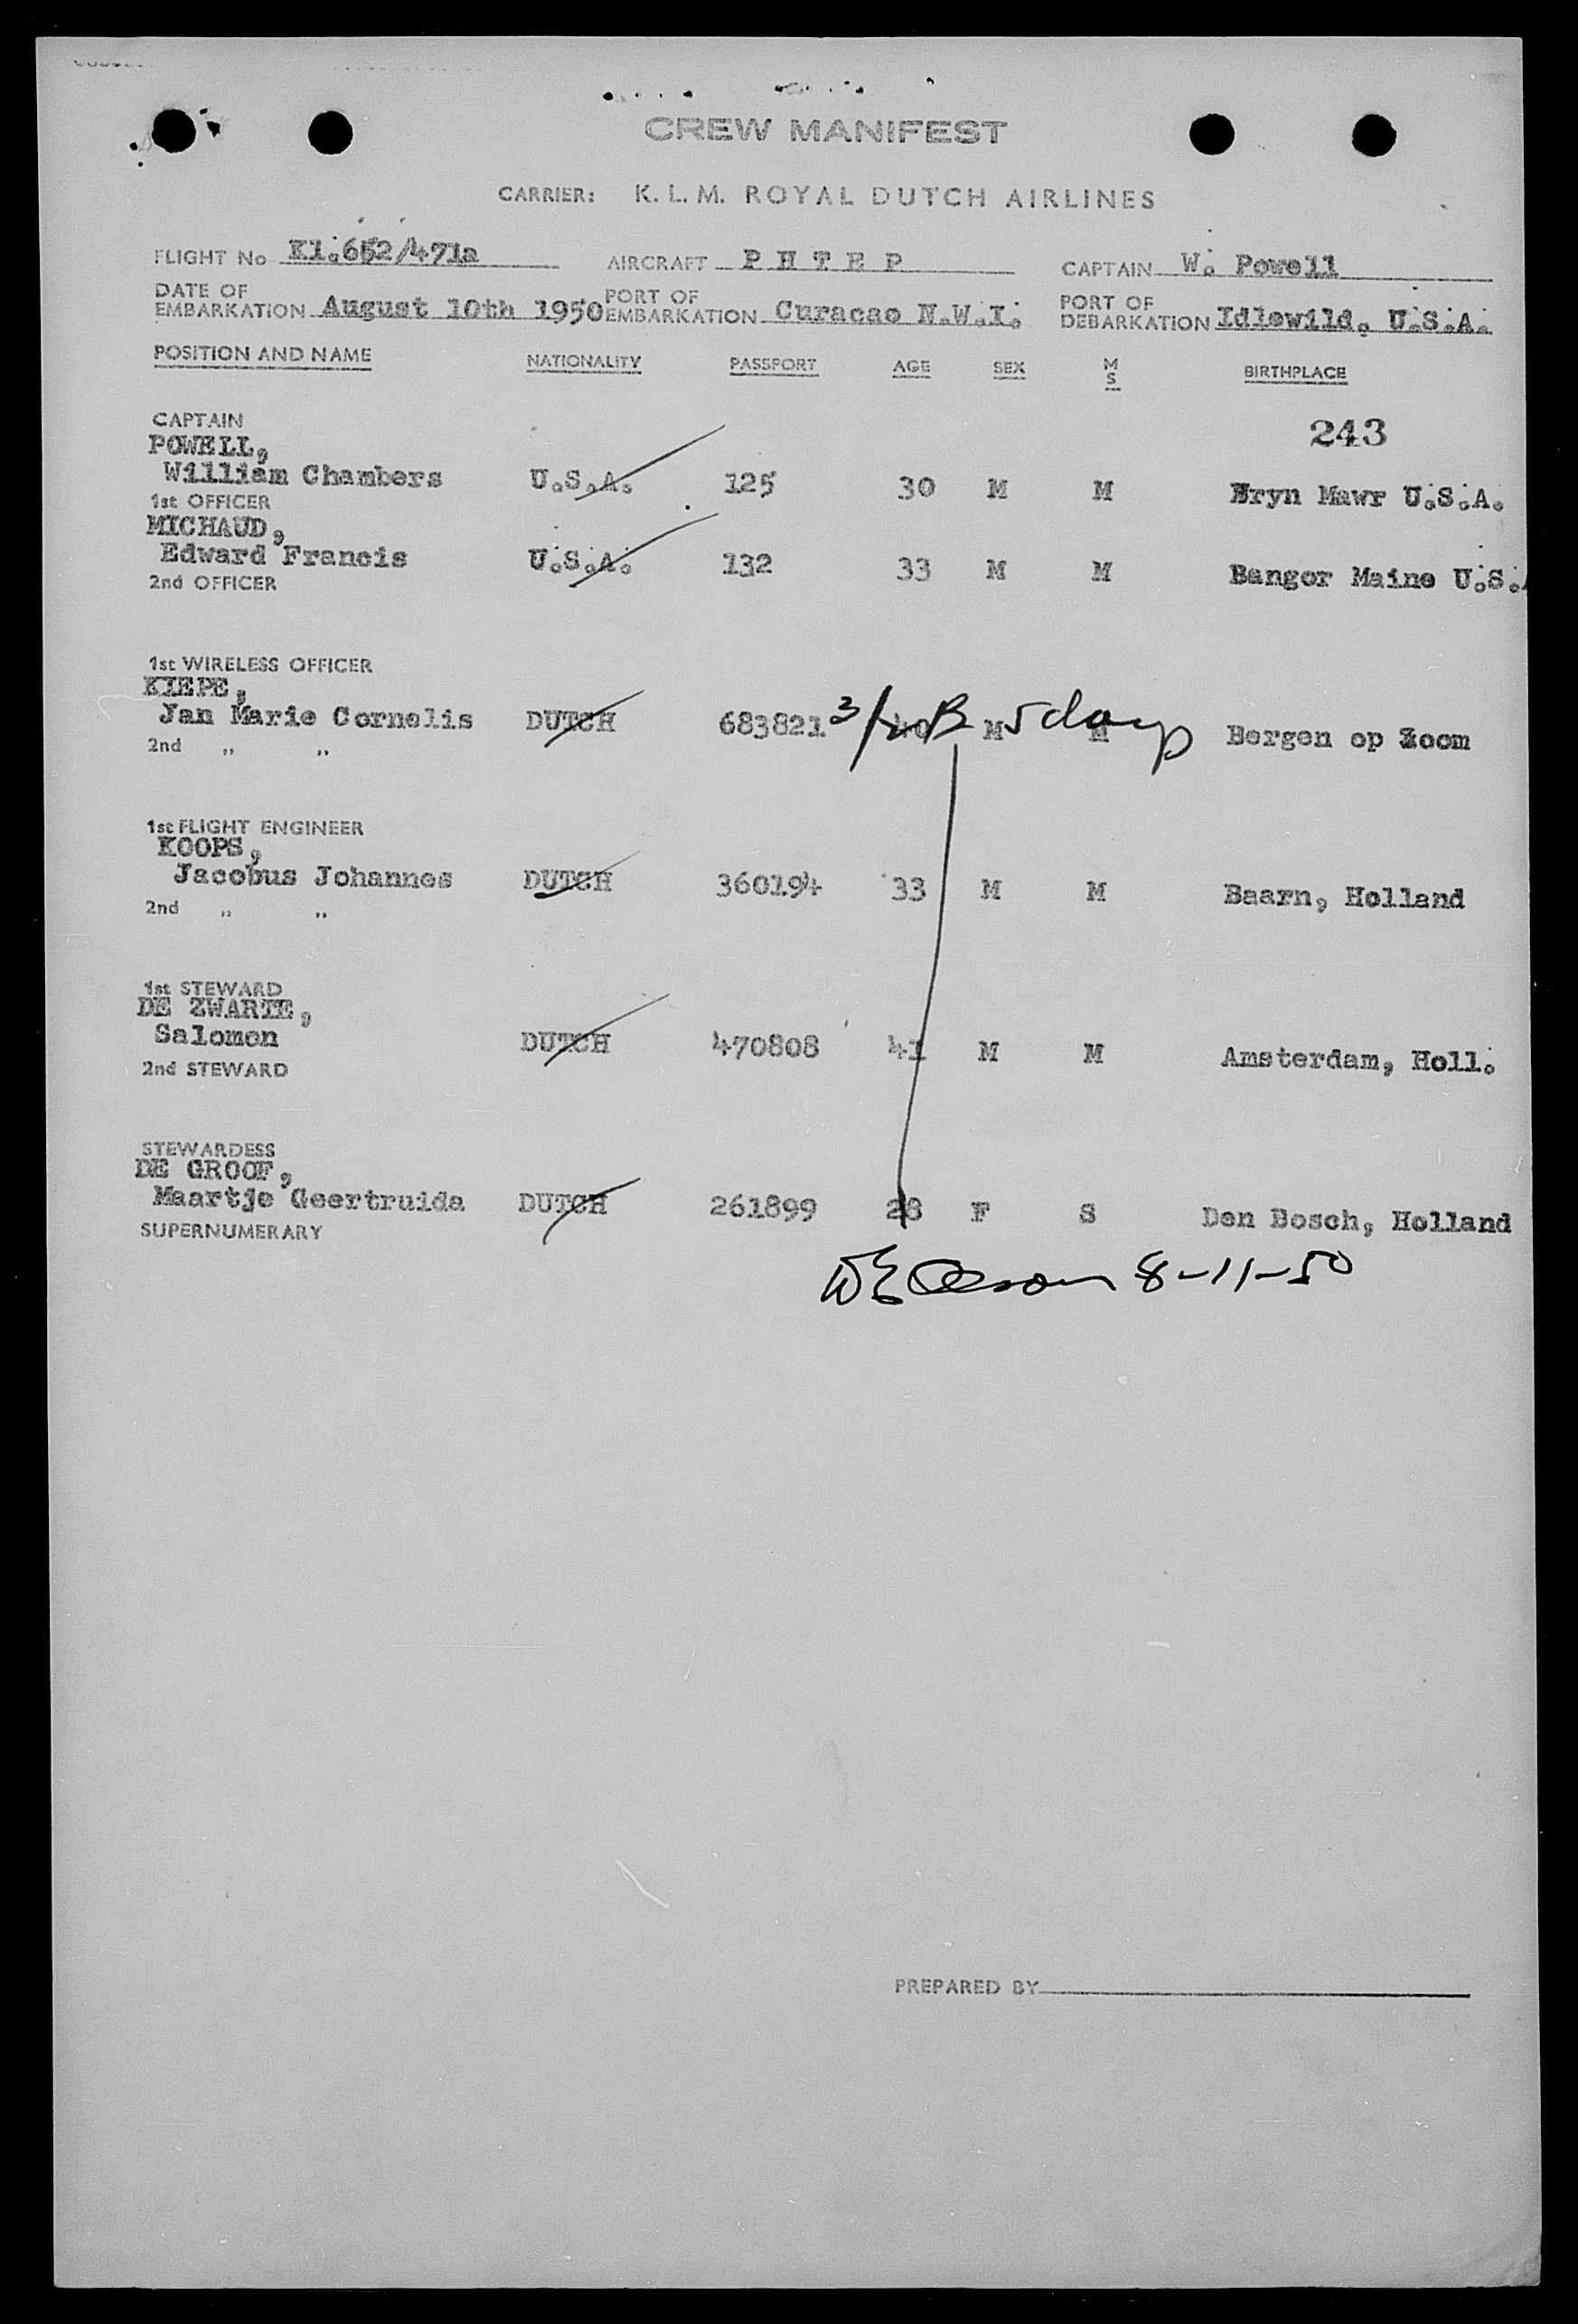 CREW MANIFEST
CARRIER: K.L.M. ROYAL DUTCH AIRLINES
FLIGHT No Kl.652/471a AIRCRAFT P H T E P CAPTAIN W. Powell
DATE OF EMBARKATION August 10th 1950 PORT OF EMBARKATION Curacao N.W.I. PORT OF DEBARKATION Idlewild, U.S.A.
POSITION AND NAME NATIONALITY PASSPORT AGE SEX M S BIRTHPLACE
243
CAPTAIN
POWELL,
William Chambers U.S.A. 125 30 M M Bryn Mawr U.S.A.
1st OFFICER
MICHAUD,
Edward Francis U.S.A. 132 33 M M Bangor Maine U.S.
2nd OFFICER
1st WIRELESS OFFICER
KIEPE,
Jan Marie Cornelis DUTCH 683821 40 M M Bergen op Zoom
5 days
2nd " "
1st FLIGHT ENGINEER
KOOPS,
Jacobus Johannes DUTCH 360194 33 M M Baarn, Holland
2nd " "
1st STEWARD
DE ZWARTE,
Salomon DUTCH 470808 41 M M Amsterdam, Holl.
2nd STEWARD
STEWARDESS
DE GROOF,
Maartje Geertruida DUTCH 261899 28 F S Den Bosch, Holland
SUPERNUMERARY
8-11-50
PREPARED BY